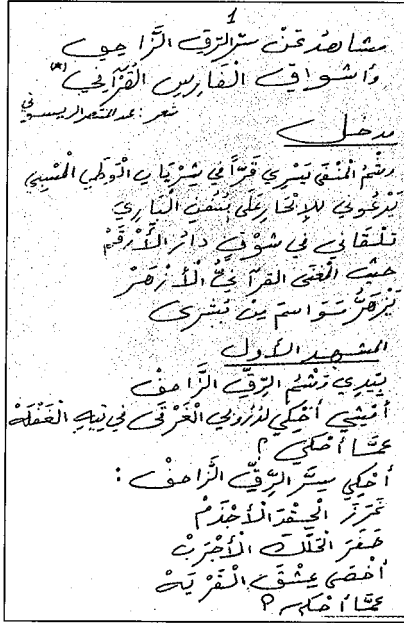 1
مشاهد عن سر الرق الزاحف
وأشواق الفارس القرآني (*)
شعر : عبد المنتصر الريسوني
مدخل
رشم المنفى يسري قرا في شريان الوطن المسبي
يدعوني للإبحار على سفن الباري
تلقاني في شوق دار الأرقم
حيث المغنى القرآني الأزهر
يزهر مواسم من بشرى
المشهد الأول
بيدي رشم الرق الزاحف
أمشي أحكي لدروبي الغرقى في تيه الغفلة
عما أحكي ؟
أحكي سر الرق الزاحف :
غرز الحقد الأجذم
صعر الحلك الأجرب
أخصى عشق القرية
عما أحكي ؟